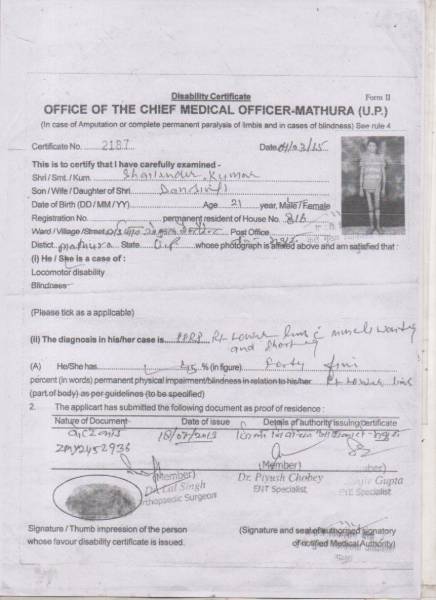 Disability Certificate Form II
OFFICE OF THE CHIEF MEDICAL OFFICER-MATHURA (U.P.)
(In case of Amputation or complete permanent paralysis of limbis and in cases of blindness) See rule 4
Certificate No. 2187 Date 04/03/15
This is to certify that I have carefully examined -
Shri / Smt. / Kum. Shailender Kumar
Son / Wife / Daughter of Shri
Date of Birth (DD / MM / YY) Age 21 year, Male / Female
Registration No. permanent resident of House No. 816
Ward / Village / Street Post Office
Distict. Mathura State U.P whose photograph is affixed above and am satisfied that :
(i) He / She is a case of :
Locomotor disability
Blindness
(Please tick as a applicable)
(ii) The diagnosis in his/her case is PPRP Rt Lower limb c muscle wasting
and shortening
(A) He/She has 45 % (in figure) Forty five
percent (in words) permanent physical impairment/blindness in relation to his/her Rt Lower limb
(part of body) as per guidelines (to be specified)
2. The applicant has submitted the following document as proof of residence :
Nature of Document Date of issue Details of authority issuing certificate
ZMY2452936 18/07/2013
(Member) (Member)
Singh Dr. Piyush Chobey Gupta
Orthopaedic Surgeon ENT Specialist EYE Specialist
Signature / Thumb impression of the person (Signature and seal of authorised signatory
whose favour disability certificate is issued. of notified Medical Authority)